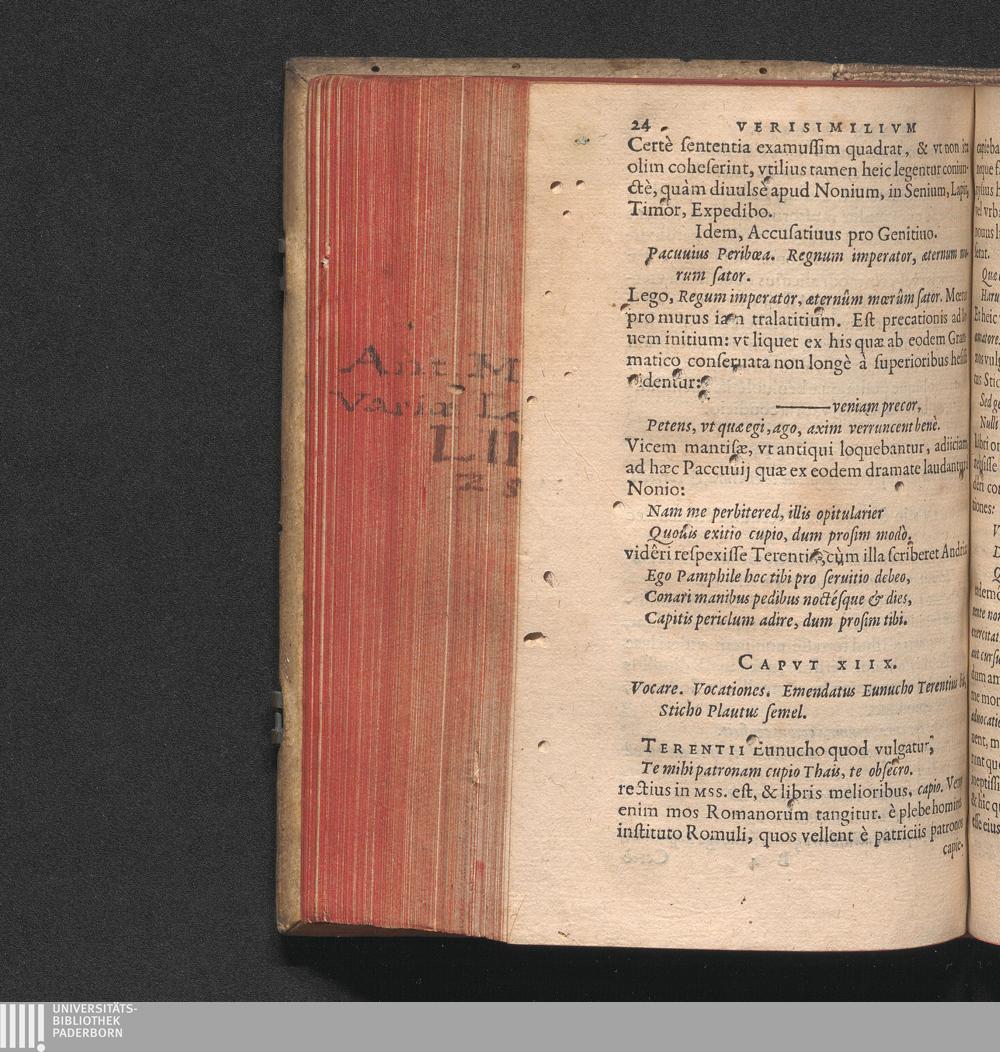 24 VERISIMILIVM
Certè ſententia examuſſim quadrat, & vt non ita
olim coheſerint, vtilius tamen heic legentur coniun-
ctè, quàm diuulsè apud Nonium, in Senium, Lapit,
Timor, Expedibo.
Idem, Accuſatiuus pro Genitiuo.
Pacuuius Peribœa. Regnum imperator, æternum mœ-
rum ſator.
Lego, Regum imperator, æternûm mœrûm ſator. Mœrus
pro murus iam tralatitium. Eſt precationis ad
uem initium: vt liquet ex his quæ ab eodem Gram
matico conſeruata non longè à ſuperioribus
videntur:
veniam precor,
Petens, vt quæ egi, ago, axim verruncent benè.
Vicem mantiſæ, vt antiqui loquebantur, adiiciam
ad hæc Paccuuij quæ ex eodem dramate laudantur à
Nonio:
Nam me perbitered, illis opitularier
Quouis exitio cupio, dum proſim modò.
vidêri reſpexiſſe Terentius, cùm illa ſcriberet Andria
Ego Pamphile hoc tibi pro ſeruitio debeo,
Conari manibus pedibus noctéſque & dies,
Capitis periclum adire, dum proſim tibi.
CAPVT XIIX.
Vocare. Vocationes. Emendatus Eunucho Terentius
Sticho Plautus ſemel.
TERENTII Eunucho quod vulgatur,
Te mihi patronam cupio Thais, te obſecro.
rectius in MSS. eſt, & libris melioribus, capio. Vetus
enim mos Romanorum tangitur. è plebe homines
inſtituto Romuli, quos vellent è patriciis patronos
capie-
Ant M
Variæ Le
LII
28
UNIVERSITÄTS-
BIBLIOTHEK
PADERBORN